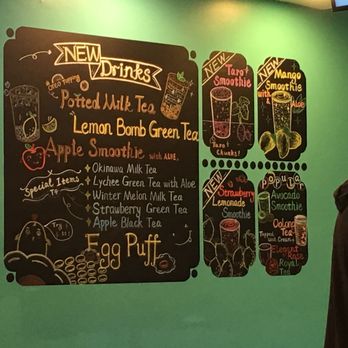 NEW
Drinks
Potted Milk Tea
Lemon Bomb Green Tea
Apple Smoothie with ALOE.
Special Items
Okinawa Milk Tea
Lychee Green Tea with Aloe
Winter Melon Milk Tea
Strawberry Green Tea
Apple Black Tea
Try it!
Egg Puff
NEW
Taro
Smoothie
Taro
Chunks!
NEW
Mango
Smoothie
with
Aloe
NEW
Strawberry
Lemonade
Smoothie
popular
Avocado
Smoothie
Oolong
Tea
Topped with Cream
Elegant Rose
Royal
Tea